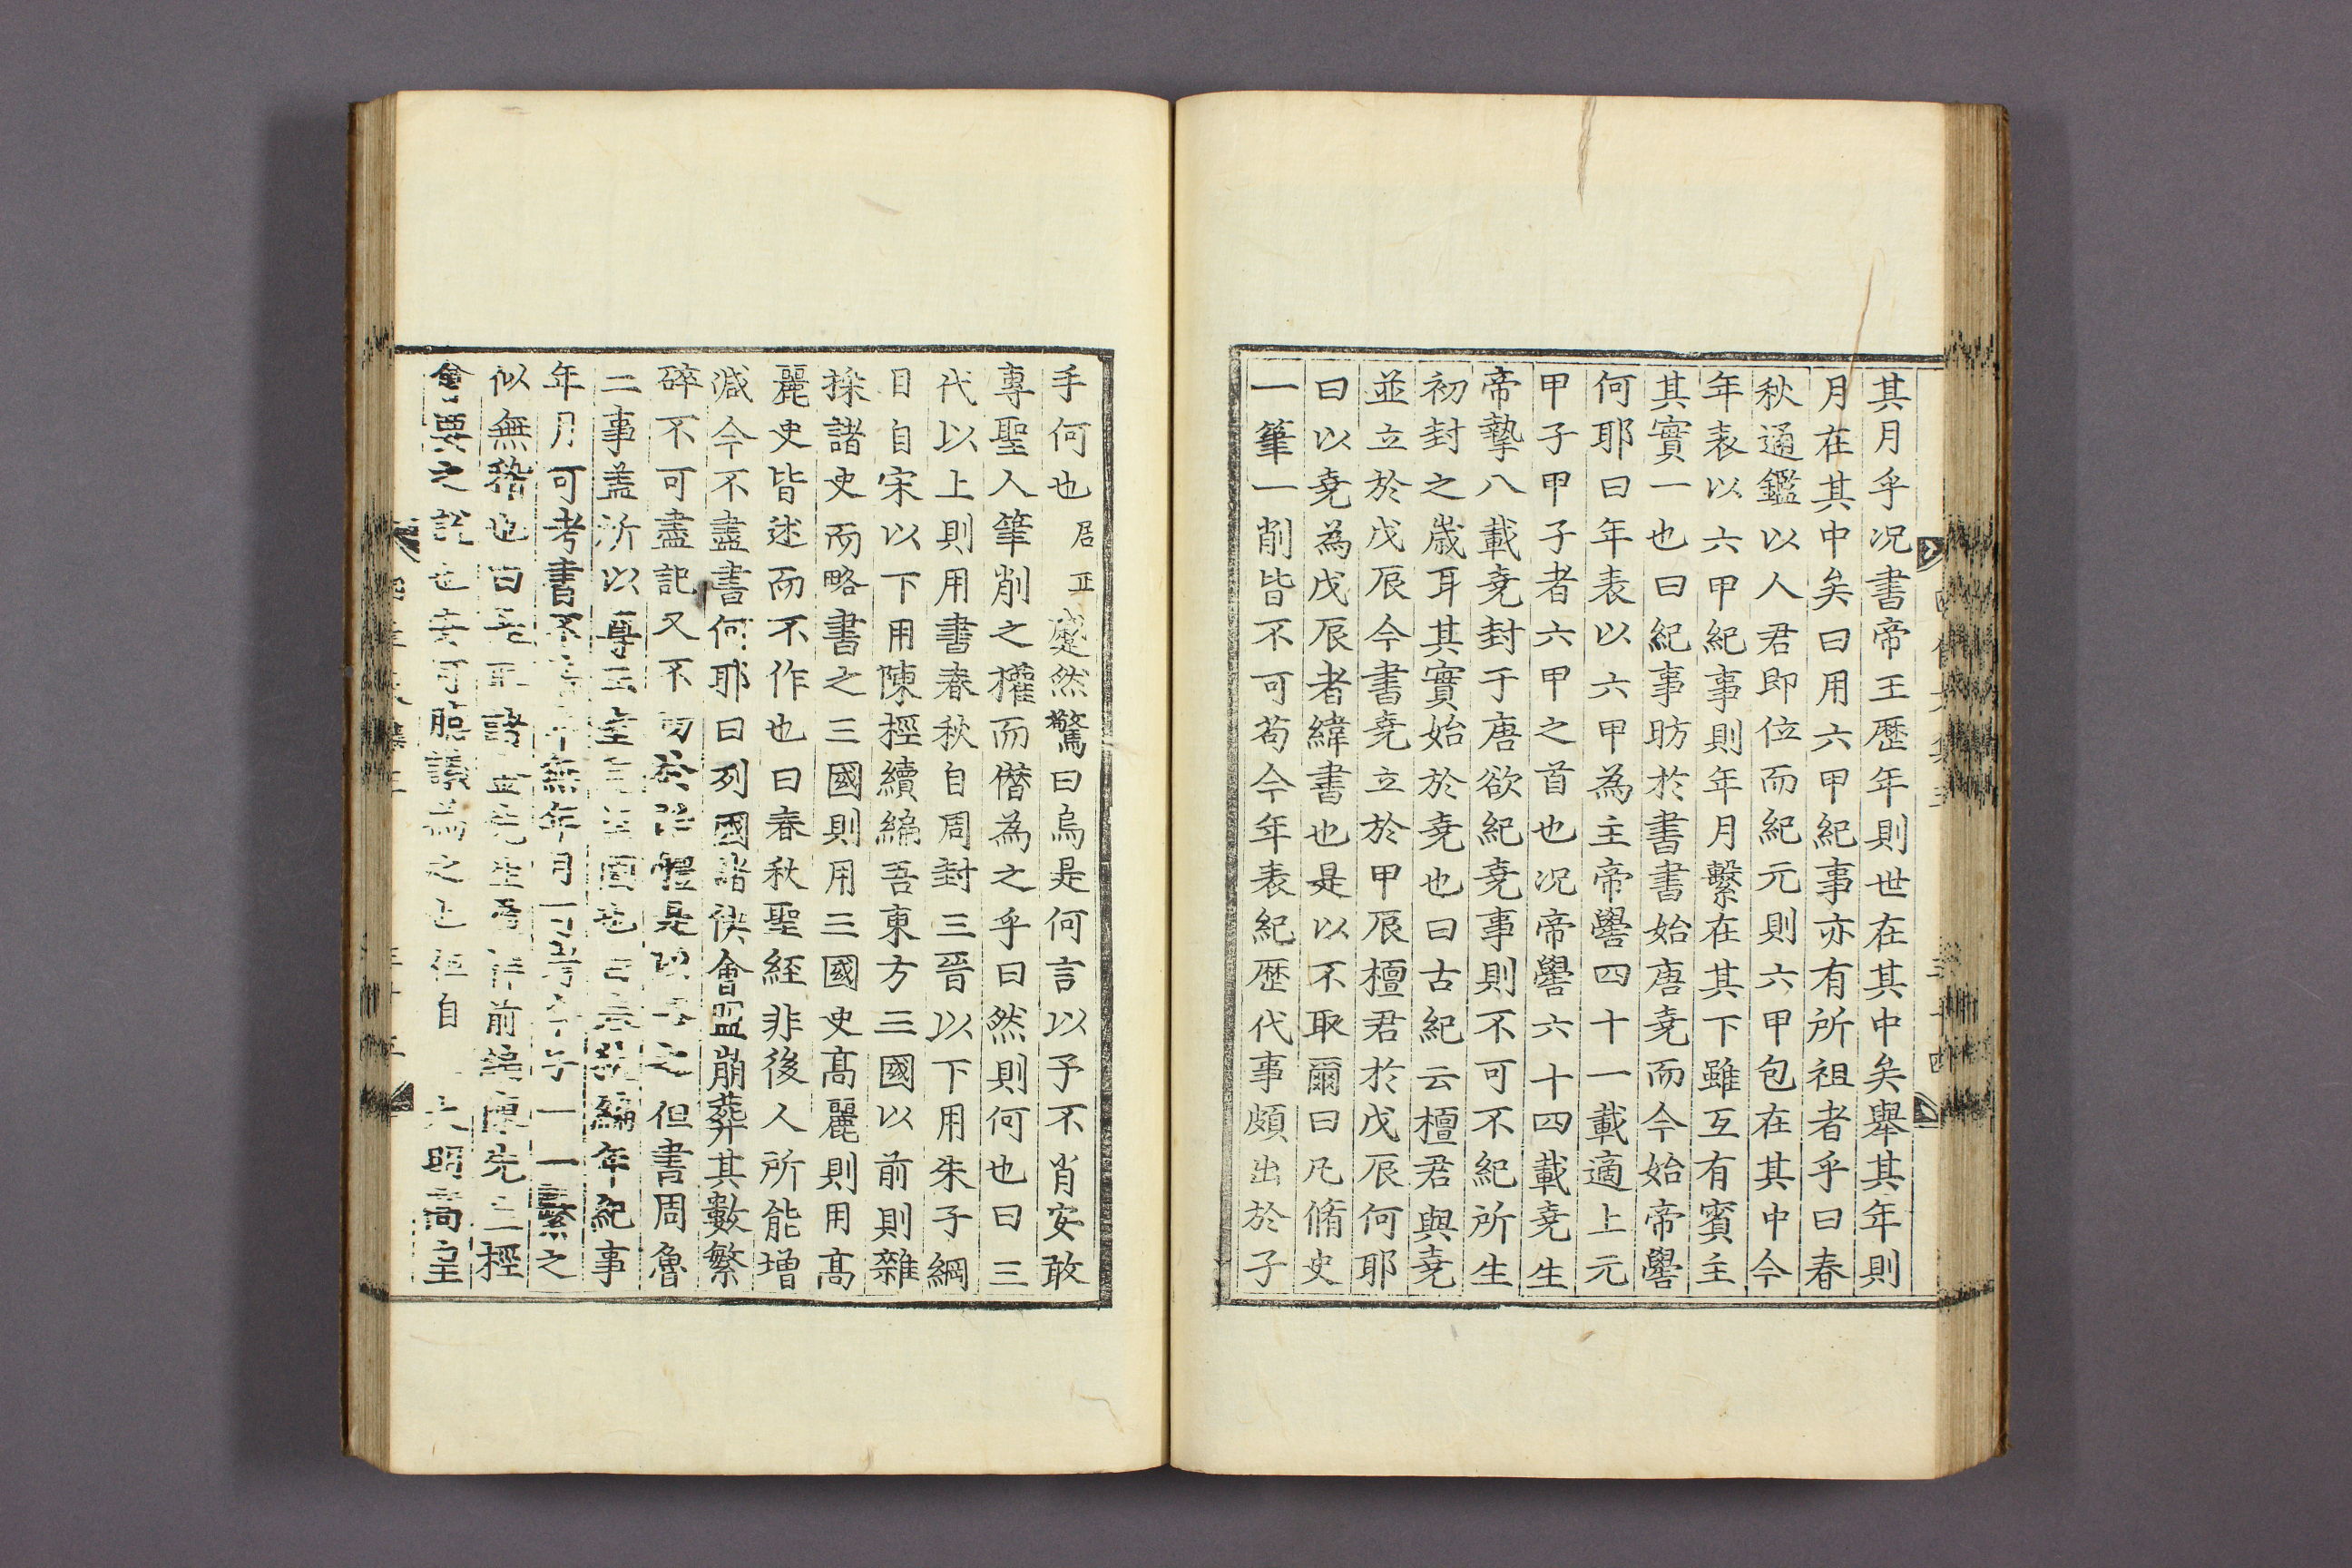 其月乎况書帝王歷年則世在其中矣擧其年則
月在其中矣曰用六甲紀事亦有所祖者乎曰春
秋通鑑以人君即位而紀元則六甲包在其中今
年表以六甲紀事則年月繫在其下雖互有賓主
其實一也曰紀事昉於書書始唐堯而今始帝嚳
何耶曰年表以六甲為主帝嚳四十一載適上元
甲子甲子者六甲之首也况帝嚳六十四載堯生
帝摯八載堯封于唐欲紀堯事則不可不紀所生
初封之歲耳其實始於堯也曰古紀云檀君與堯
並立於戊辰今書堯立於甲辰檀君於戊辰何耶
曰以堯為戊辰者緯書也是以不取爾曰凡脩史
一筆一削皆不可苟今年表紀歷代事頗出於子
手何也居正蹙然驚曰烏是何言以予不肖安敢
專聖人筆削之權而僭為之乎曰然則何也曰三
代以上則用書春秋自周封三晉以下用朱子綱
目自宋以下用陳桱續編吾東方三國以前則雜
採諸史而略書之三國則用三國史高麗則用高
麗史皆述而不作也曰春秋聖経非後人所能增
减今不盡書何耶曰列國諸侯會盟崩葬其數繁
碎不可盡記又不 於 體是以 之但書周魯
二事盖所以尊王室 也曰 編年紀事
年月可考書不 年無年月可考 一一繫之
似無稽也曰 諸 先生 前編陳先生桱
會要之說也 可臆議為之也但自 大明高皇